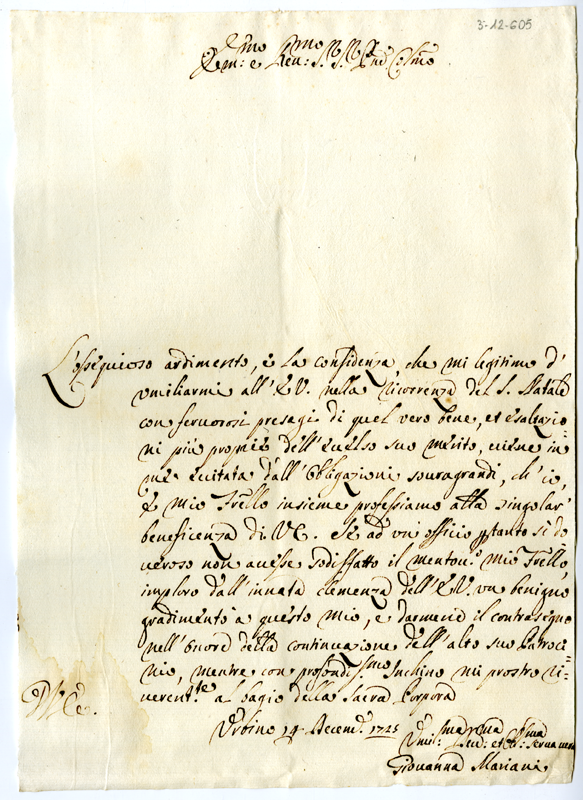 3-12-605
Em:mo e Reu:mo S.r S.r Pnd Col:mo
L'ossequioso ardimento, e la confidenza, che mi legitima d'
umiliarmi all'E V. nella ricorrenza del S. Natale
con feruorosi presagi di quel vero bene, et esaltazio=
ni più proprie dell'eccelso suo merito, uiene in
me ecitata dall'obligazioni souragrandi, ch'io,
e mio Frello insieme professiamo alla singolar
beneficenza di V E. Se ad vn officio ptanto si do
ueroso non auesse sodisfatto il mentou.o mio Frello,
imploro dall'innata clemenza dell'E V. vn benigno
gradimento a questo mio, e darmene il contrasegno
nell'onore della continuazione dell'alto suo Patroci=
nio, mentre con profondiss.mo Inchino mi prostro ri=
uerent.te al bagio della Sacra Porpora
D V E.
Vrbino 19 Decem. 1725
Vmil:ma Deu:ma et Obl:ma Serua uera
Giouanna Mariani